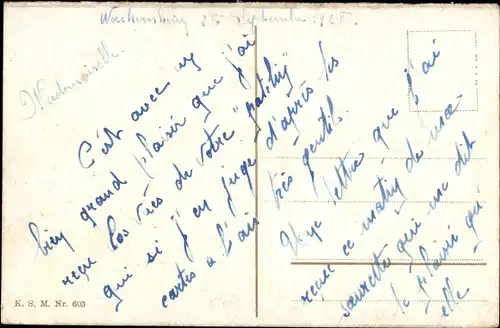 25 Septembre 1928.
Mademoiselle.
C'est avec un
bien grand plaisir que j'ai
reçu les vues de votre
qui si j'en juge d'après les
cartes a l'air très gentil.
Une lettre que j'ai
reçue ce matin de ma
sœurette qui me dit
le plaisir qu'
elle
K. S. M. Nr. 603